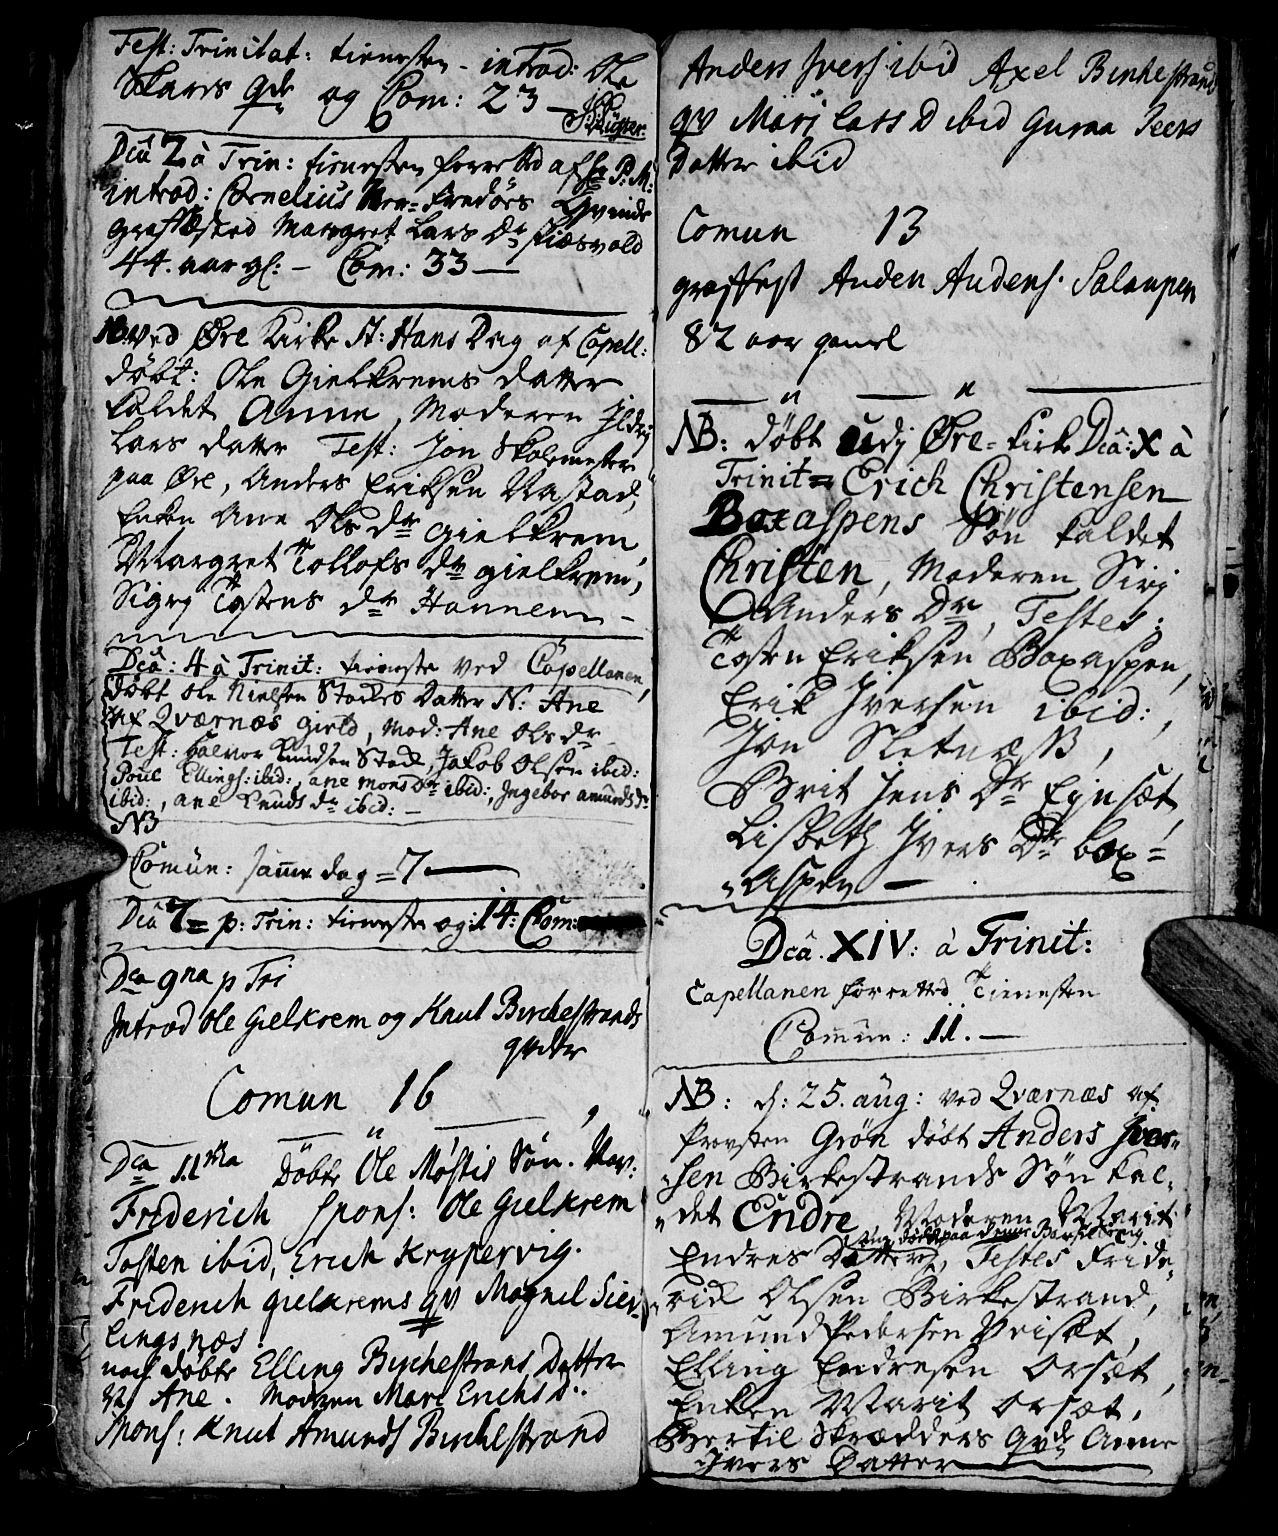 Fest: Trinitat: tienesten - introd: Ole
Skars qde og Com: 23 —
Dca 2 à Trin: tienesten forretted af Hr P: M:
introd: Cornelius Fredörs Qvinde
graffæsted Margret Lars Dr Kiæsvold
44. aar gl: - Com: 33 —
NB. ved Øre Kirke St: Hans Dag af Capell:
döbt: Ole Gielkrems datter
kaldet Anne, Moderen Ildrj
Lars datter Test: Jon Skolemester
paa Øre, Anders Eriksen Nastad,
Enken Ane Ols dr Gielkrem,
Margret Tollofs dr gielkrem,
Sigrj Tostens dr Hannem -
Dca: 4 à Trinit: tieneste ved Capellanen,
döbt Ole Nielsen Stockes Datter N: Ane
af Qværnæs gield, Mod: Ane Ols dr
Test: Halvor Knudsen Stock, Jakob Olsen ibid:
Poul Ellings: ibid:, ane mons Dr ibid:, Ingebor amunds dr
ibid:, ane Knuds dr ibid: -
NB
Comun: samme dag = 7 —
Dca 7 = p: Trin: tieneste og: 14: Com:
Dca 9na p Tri
Introd Ole Gielkrem og Knut Birchestrands
qvder
Comun 16
Dca 11tha Döbte Ole Møstis Sön. Nav:
Friderich Spons: Ole Gielkrem
Tosten ibid, Erich Krypervig.
Friderich gielkrems qv Magnil Siev-
lingsnæs
noch döbte Elling Birchestrans Datter
N Ane. Moderen Mari Erichs D:
Spons: Knut Amunds Birchestrand
Anders Ivers: ibid Axel Birchestrand
qv Mari Lars D ibid Guraa Peers
Datter ibid
Comun 13
graffest Auden Audens: Solaupen
82 aar gamel
NB: döbt udj Øre-Kirke Dca: X à
Trinit= Erich Christensen
Boxaspens Sön kaldet
Christen, Moderen Sirj
Anders Dr, Testes:
Tosten Eriksen Boxaspen,
Erik Iversen ibid:,
Jon Sletnæss,
Brit Jens Dr Eynsæt,
Lisbeth Ivers Dr box=
aspen —
Dca. XIV: à Trinit:
Capellanen forretted Tienesten
Comun: 11. —
NB: d: 25. aug: ved Qværnæs af
Provsten Grön döbt Anders Iver-
sen Birkestrands Sön kal-
det Endre, Moderen Marit
Endres Datter, Testes Fride-
rich Olsen Birkestrand,
Amund Pedersen Orset,
Elling Endresen Orsæt,
Enken Marit Orsæt,
Bertil Skrædders Qvde Anne
Ivers Datter —